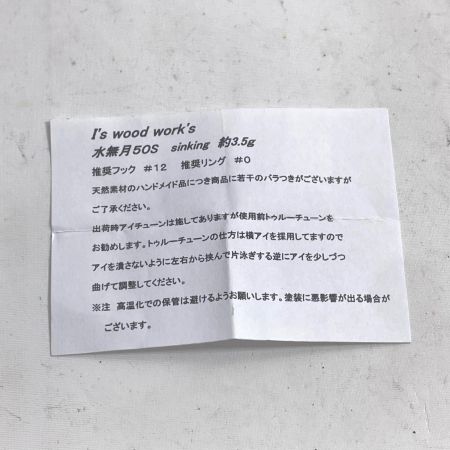 I's wood work's
水無月50S sinking 約3.5g
推奨フック #12 推奨リング #0
天然素材のハンドメイド品につき商品に若干のバラつきがございますが
ご了承ください。
出荷時アイチューンは施してありますが使用前トゥルーチューンを
お勧めします。トゥルーチューンの仕方は横アイを採用してますので
アイを潰さないように左右から挟んで片泳ぎする逆にアイを少しづつ
曲げて調整してください。
※注 高温化での保管は避けるようお願いします。塗装に悪影響が出る場合が
ございます。